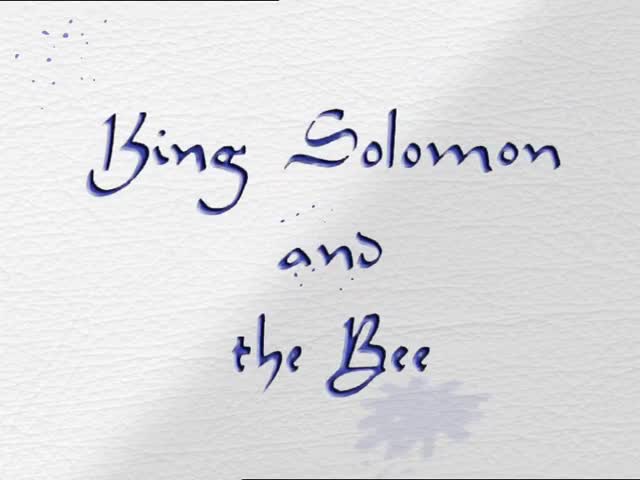 King Solomon
and
the Bee